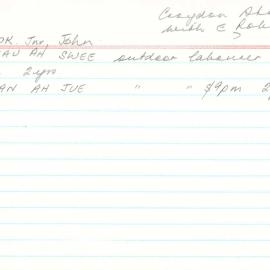 Croydon
with E
OK. Jnr, John
AU AH SWEE outdoor labourer
2 yrs
AN AH JUE " " $9pm 2